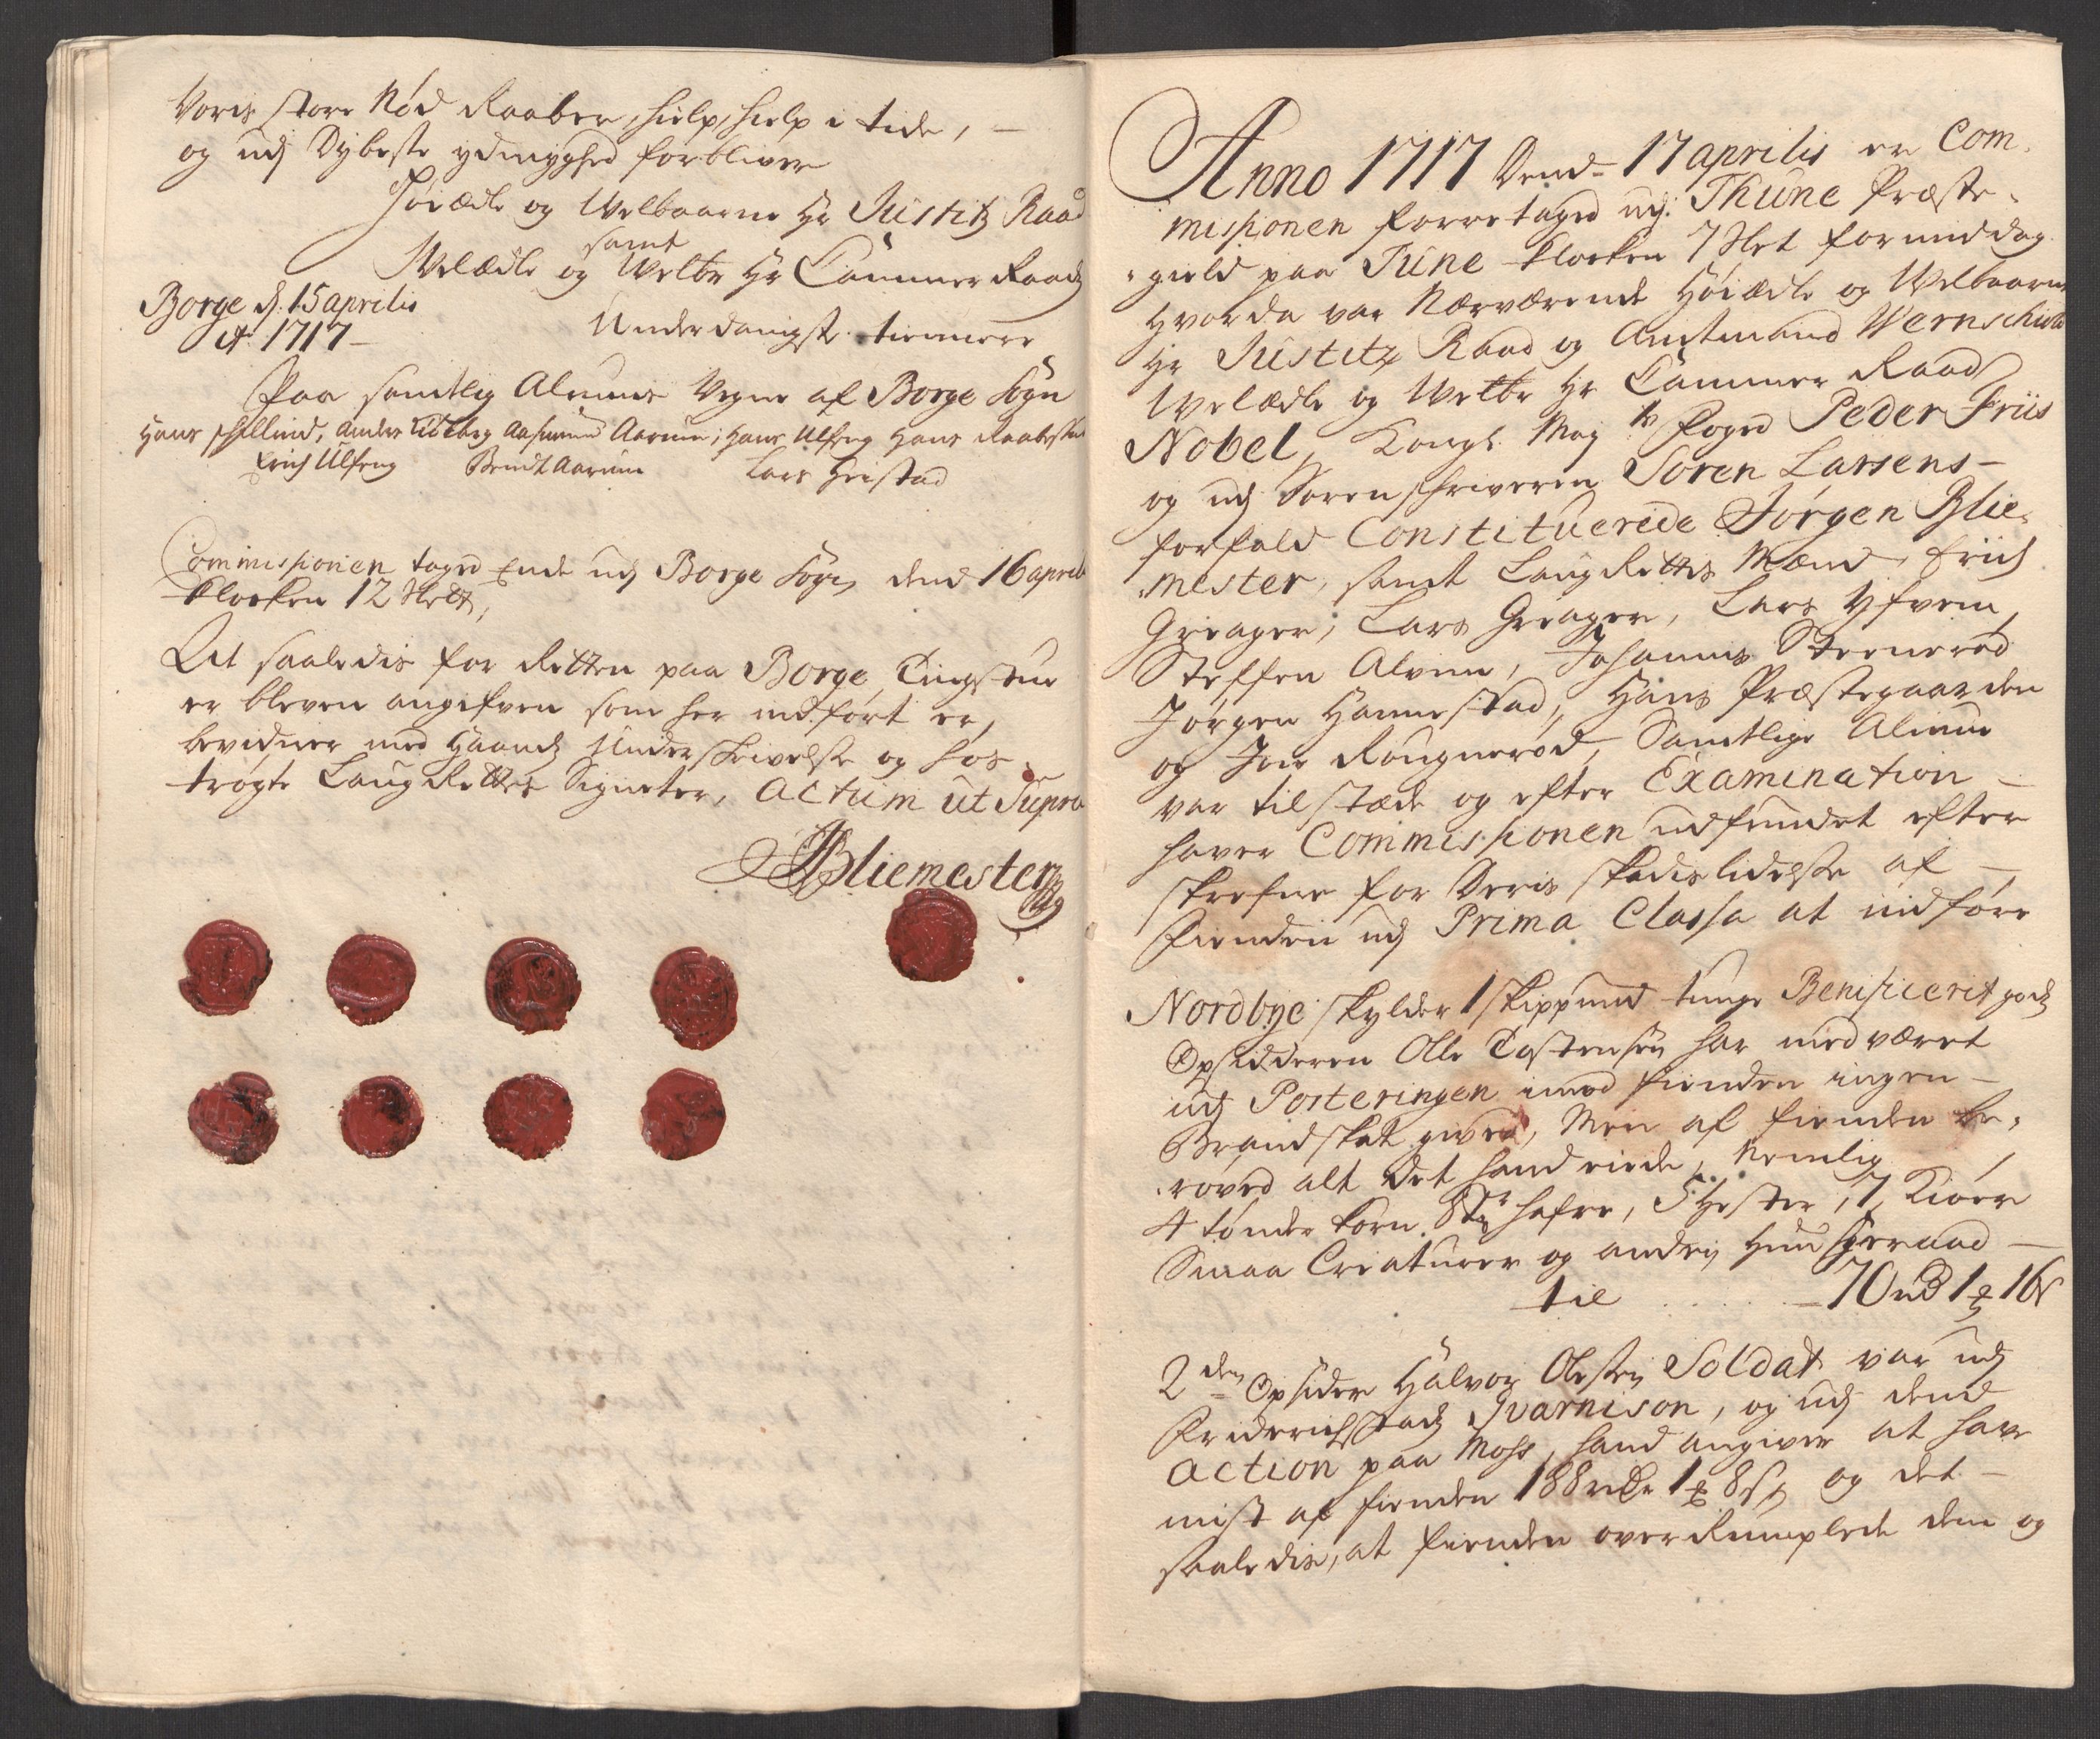 Voris store Nød Raaber, hielp, hielp i tide, –
og udj Dybeste ydmyghed forbliver
Høiædle og Welbaarne Hr Justitz Raad
samt
Welædle og Welbr Hr Cammer Raads
Borge d. 15 aprilis
Ao 1717 –
Underdanigste tiennere
Paa samtlig Almues Vegne af Borge Sogn
Hans Anders Aarum, Hans Ulfeng Hans Raabestad
Erich Ulfeng Bendt Aarum Lars Heistad
Commissionen toges Ende udj Borge Sogn, dend 16 aprilis
Klocken 12 Slett,
At saaledis for Retten paa Borge Tingstue
er bleven angifven som her indført er,
bevidner med Haands Underskrivelse og hos-
trøgte LaugRettes Signeter, Actum ut Supra
JBliemester
Anno 1717 Dend 17 aprilis er Com-
missionen forretaged udj Thune Præste-
gield paa Tune Klocken 7 Slet formiddag
Hvorda var Nærværende Høiædle og Welbaarne
Hr Justitz Raad og Amtmand Wernschiold
Welædle og Welbr Hr Cammer Raad
Nobel, Kongl. Mayts Foged Peder Friis
og udj Sorenschriveren Søren Larsens –
forfald Constituerede Jørgen Blie-
mester, samt LaugRettis Mænd, Erich
Greager, Lars Greager, Lars Yfven,
Steffen Alvim, Johannis Steenerød
Jørgen Hannestad, Hans Præstegaarden
og Joen Rougnerød, Samtlige Almue
var tilstæde og efter Examination –
haver Commissionen udfundet efter
skrefne for Deris skadislidelse af –
Fienden udj Prima Classa at indføre
Nordbye skylder 1 skippund tunge Benificerit gods
Opsidderen Olle Tostensen har med været
udj Posteringen imod fienden ingen –
Brandskat gived, Men af fienden be-
røved alt det hand eiede, Nemlig
4 tønder korn, 8 tr hafre, 5 Hester, 7 Kiøer
Smaa Creaturer og anden Huusgeraad –
til – 70 rd 1 16 s
2den Opsider Halvor Olesen Soldat var udj
Friderichstads Gvarnison, og udj dend
Action paa Moss, hand angiver at have
mist af fienden 188 rdr 1 8 s og det –
saaledis, at fienden overRumplede dem og